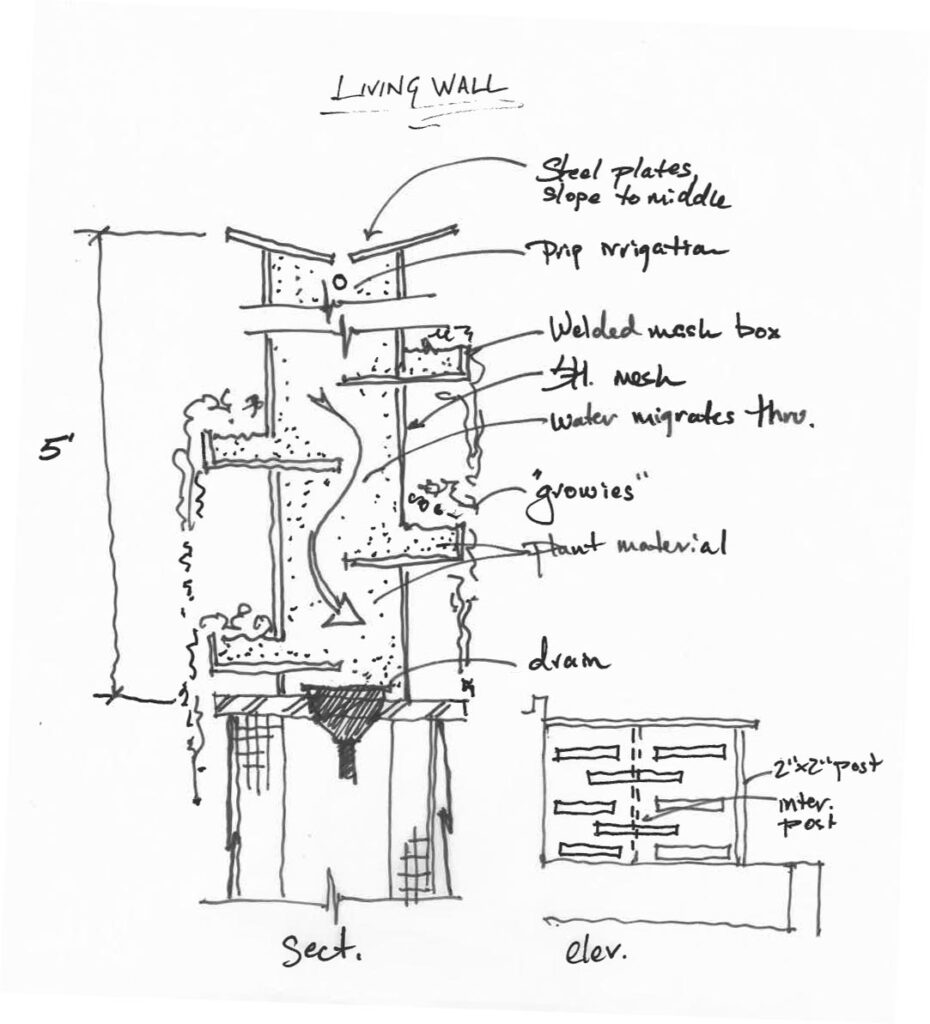 LIVING WALL
Steel plates,
slope to middle
Drip irrigation
Welded mesh box
St. mesh
water migrates thru.
5'
"growies"
plant material
drain
2"x2" post
inter.
post
Sect.
elev.